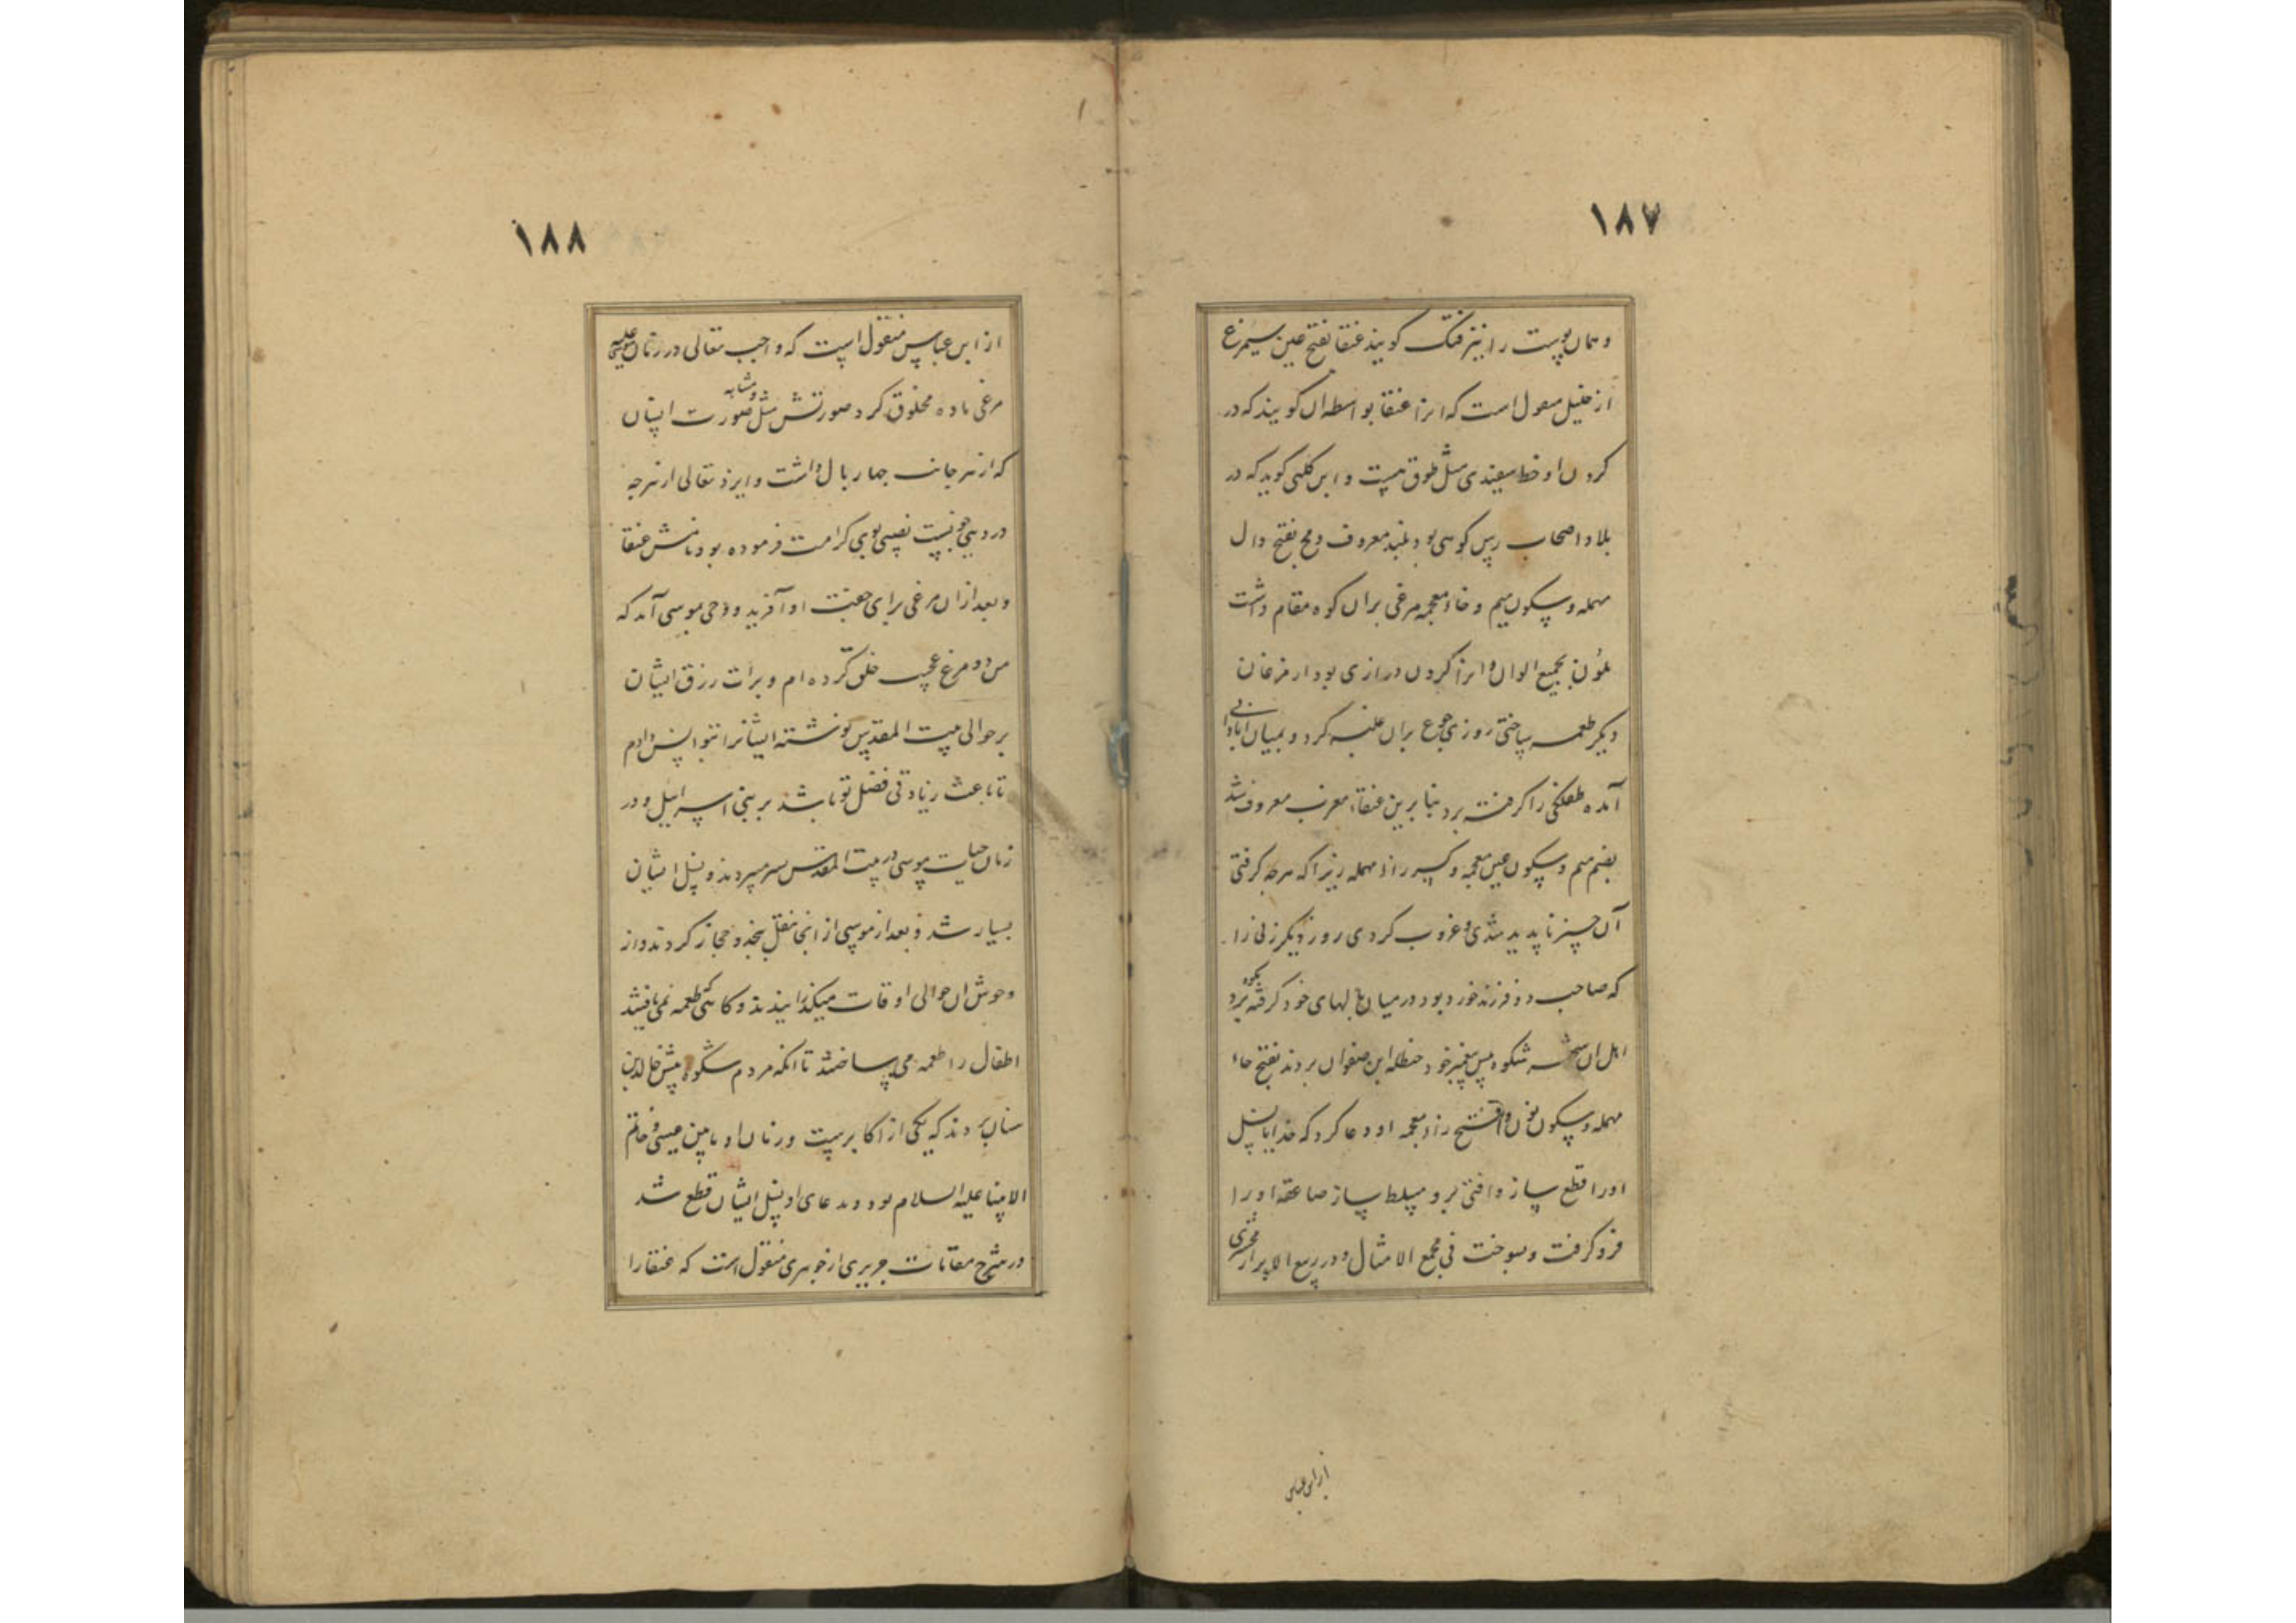 ۱۸۷
و همان پوست را نیز فنک گویند عنقا بفتح عین سیمرغ
از خلیل منقول است که انرا عنقا بواسطه ان گویند که در
گردن او خط سفیدی مثل طوق هست و ابن کلبی گوید که در
بلاد اصحاب رس کوهی بود بلند معروف دمخ بفتح دال
مهمله و سکون میم و خاء معجمه مرغی بران کوه مقام داشت
ملون بجمیع الوان و انرا گردن درازی بود از مرغان
دیگر طعمه ساختی روزی جوع بران غلبه کرد و بمیان آبادانی
آمده طفلکی را گرفته برد بنا برین عنقاء مغرب معروف شد
بضم میم و سکون غین معجمه و کسر راء مهمله زیرا که هر چه گرفتی
آن چیز ناپدید شدی و غروب کردی روز دیگر زنی را
که صاحب دو فرزند خورد بود در میان بالهای خود گرفته بکوه برد
اهل ان شکوه پیش پیغمبر خود حنظله ابن صفوان بردند بفتح حاء
مهمله و سکون نون و فتح زاء معجمه او دعا کرد که خدایا نسل
اورا قطع ساز و افتی برو مسلط ساز صاعقه اویرا
فرو گرفت و سوخت فی مجمع الامثال و در ربیع الابرار زمخشری
از ابن عباس
۱۸۸
از ابن عباس منقول است که واجب تعالی در زمان موسی علیه
مرغی ماده مخلوق کرد صورتش مثل و مشابه صورت انسان
که از هر جانب چهار بال داشت و ایزد تعالی از هر چه
در دیی نصیبی بوی کرامت فرموده بود نامش عنقا
و بعد ازان مرغی برای جفتیت او آفرید و وحی موسی آمد که
من دو مرغ عجیب خلق کرده ام و برات رزق ایشان
بر حوالی بیت المقدس نوشته ایشانرا بتو انس دادم
تا باعث زیادتی فضل تو باشد بر بنی اسرائیل و در
زمان حیات موسی در بیت المقدس سر میبردند و نسل ایشان
بسیار شد و بعد از موسی از انجا نقل بنجد و حجاز کردند و از
وحوش ان حوالی اوقات میگذرانیدند و کاهی طعمه نمی یافتند
اطفال را طعمه می ساختند تا انکه مردم شکوه پیش خالد بن
سنان بردند که یکی از اکابرست و زمان او مابین عیسی و خاتم
الانبیا علیه السلام بود و بدعای او نسل ایشان قطع شد
در شرح مقامات حریری از جوهری منقول است که عنقا را